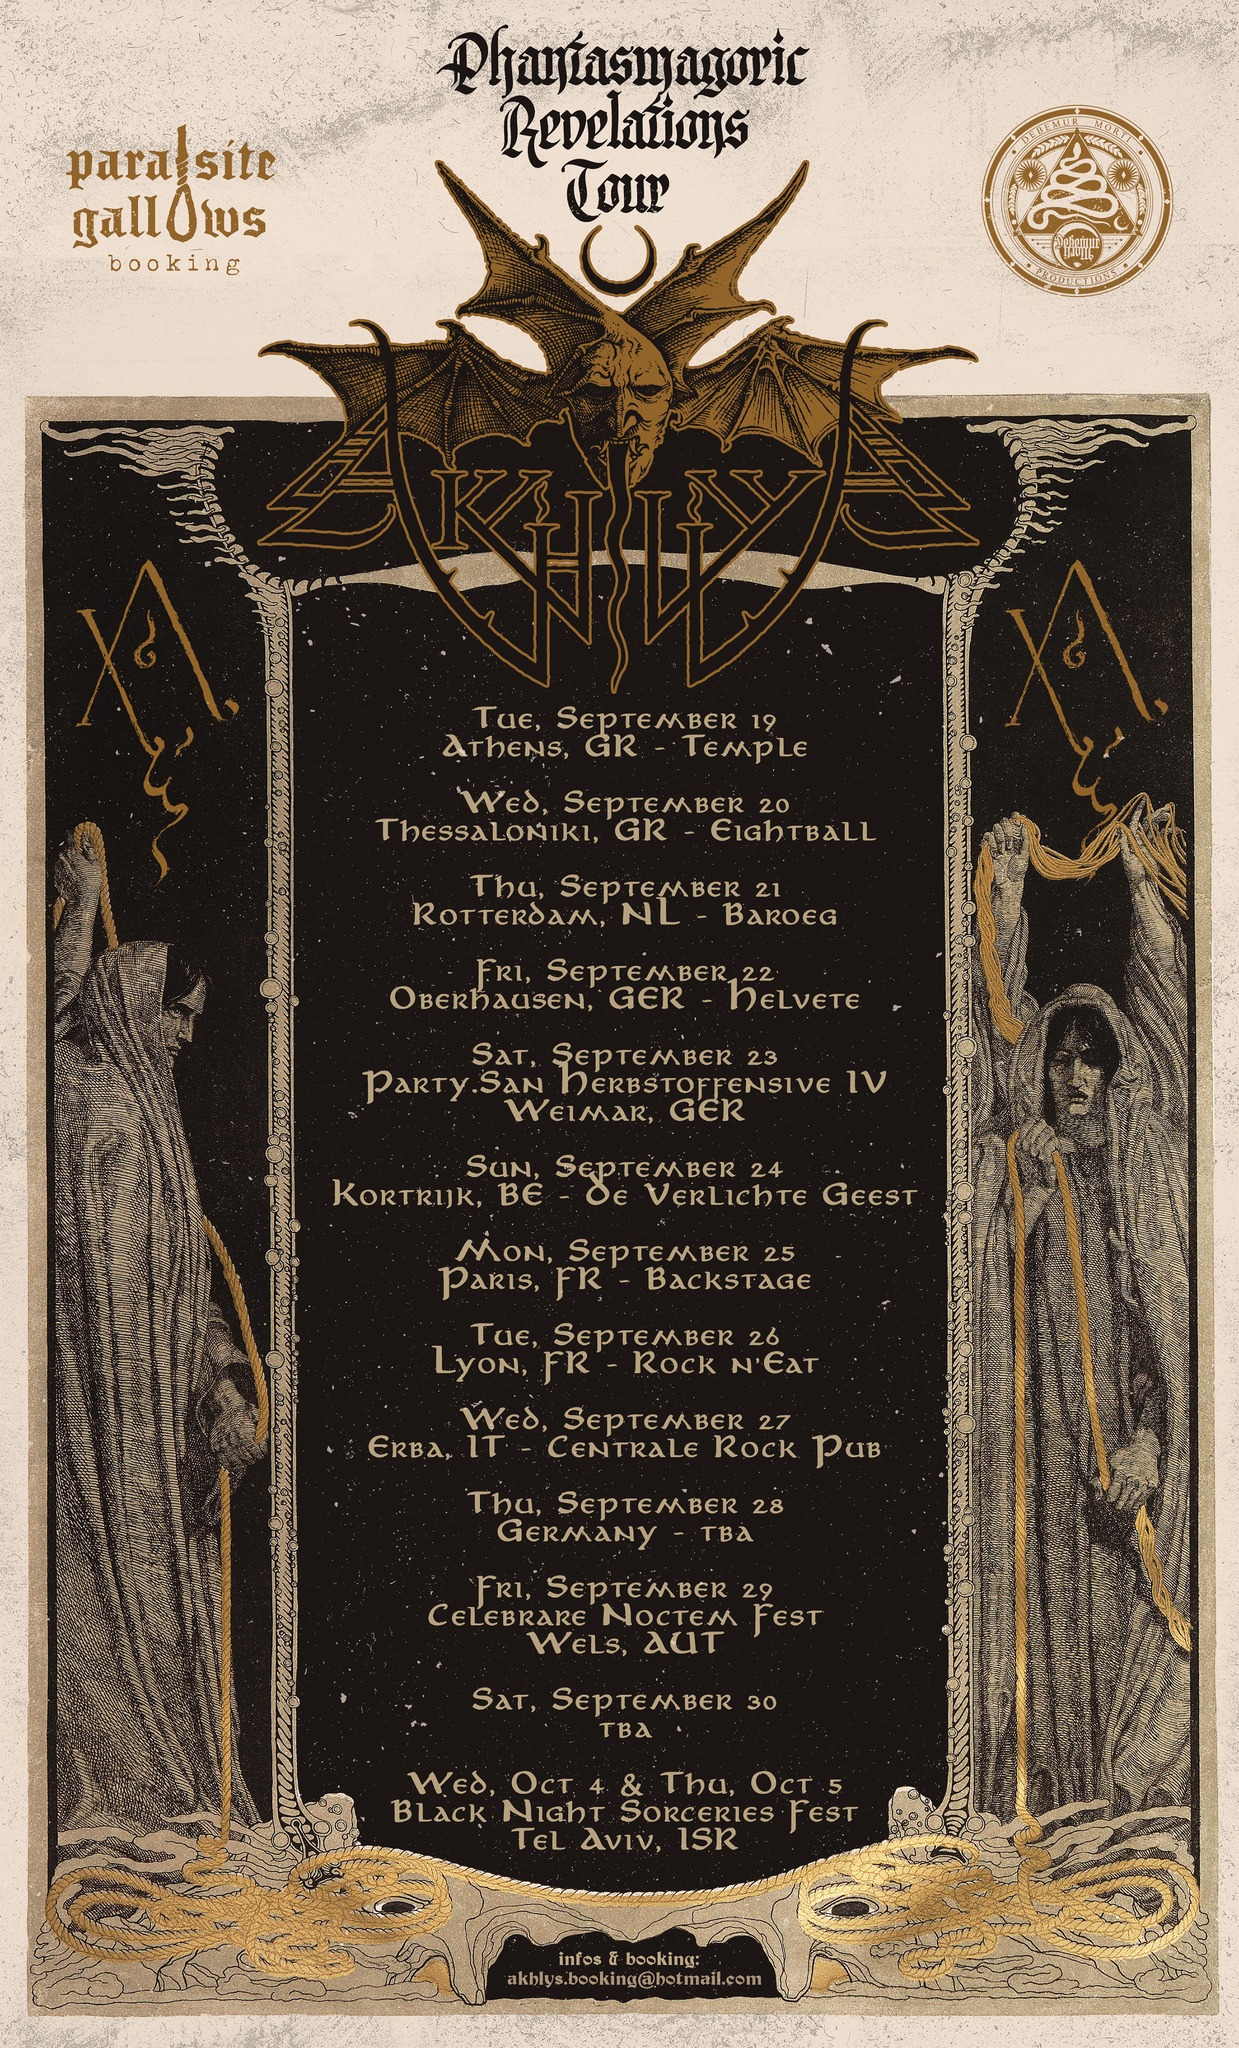 Phantasmagoric
Revelations
Tour
parasite
gallows
booking
DEBEMUR MORTI
Debemur
Morti
PRODUCTIONS
AKHLYS
Tue, September 19
Athens, GR - Temple
Wed, September 20
Thessaloniki, GR - Eightball
Thu, September 21
Rotterdam, NL - Baroeg
Fri, September 22
Oberhausen, GER - Helvete
Sat, September 23
Party.San Herbstoffensive IV
Weimar, GER
Sun, September 24
Kortrijk, BE - De Verlichte Geest
Mon, September 25
Paris, FR - Backstage
Tue, September 26
Lyon, FR - Rock n'Eat
Wed, September 27
Erba, IT - Centrale Rock Pub
Thu, September 28
Germany - TBA
Fri, September 29
Celebrare Noctem Fest
Wels, AUT
Sat, September 30
TBA
Wed, Oct 4 & Thu, Oct 5
Black Night Sorceries Fest
Tel Aviv, ISR
infos & booking:
akhlys.booking@hotmail.com